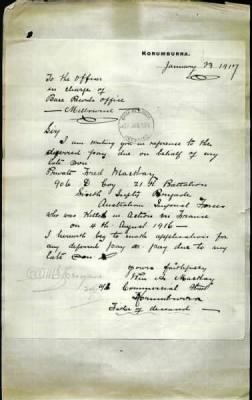 KORUMBURRA.
January 23 1917
To the Officer
in charge of
Base Records Office
Melbourne
Sir
I am writing you in reference to the
deferred pay due on behalf of my
late son
Private Fred Mackay
906 D Coy 21st Battalion
Sixth Infty Brigade
Australian Imperial Forces
who was Killed in Action in France
on 4th August 1916 —
I herewith beg to make application for
any deferred pay or pay due to my
late son
Yours faithfully
Wm A. Mackay
Commercial Street
Korumburra
Father of deceased